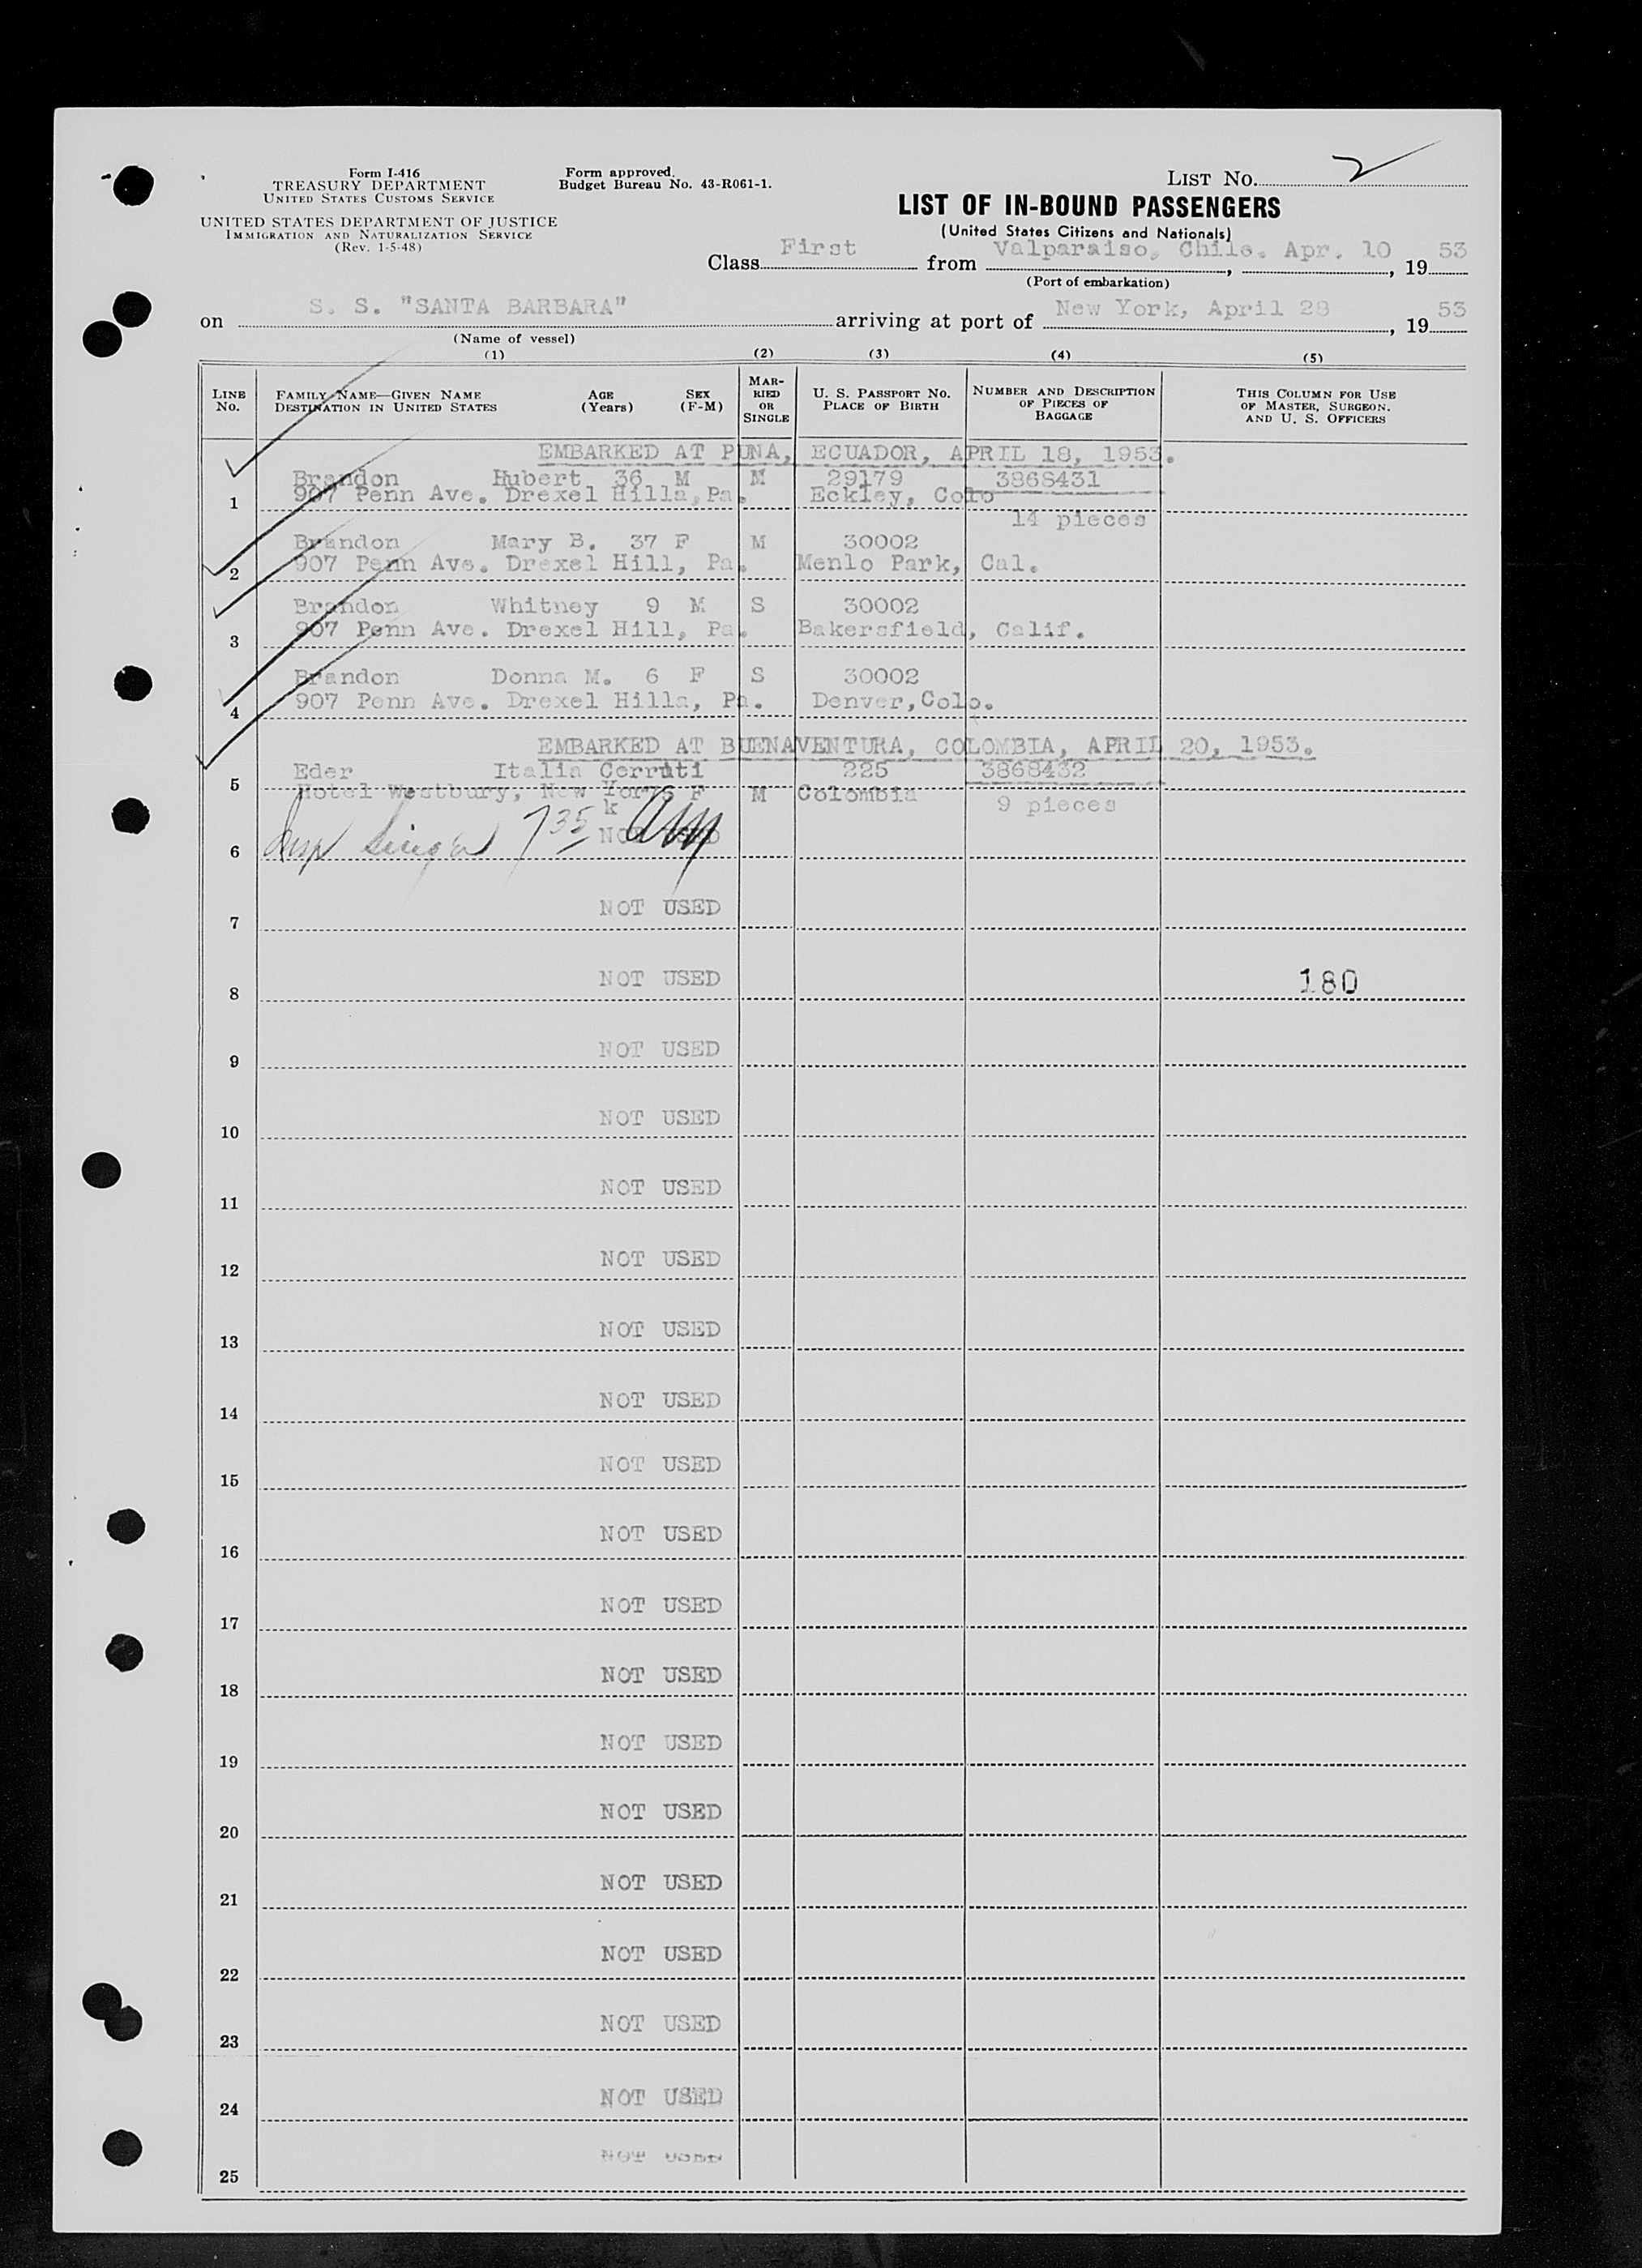 Form I-416
TREASURY DEPARTMENT
UNITED STATES CUSTOMS SERVICE
UNITED STATES DEPARTMENT OF JUSTICE
IMMIGRATION AND NATURALIZATION SERVICE
(Rev. 1-5-48)
Form approved.
Budget Bureau No. 43-R061-1.
LIST No. 2
LIST OF IN-BOUND PASSENGERS
(United States Citizens and Nationals)
Class First from Valparaiso, Chile. Apr. 10, 19 53
(Port of embarkation)
on S. S. "SANTA BARBARA" arriving at port of New York, April 28, 19 53
(Name of vessel)
(1) (2) (3) (4) (5)
LINE No. FAMILY NAME—GIVEN NAME DESTINATION IN UNITED STATES AGE (Years) SEX (F-M) MARRIED OR SINGLE U. S. PASSPORT NO. PLACE OF BIRTH NUMBER AND DESCRIPTION OF PIECES OF BAGGAGE THIS COLUMN FOR USE OF MASTER, SURGEON, AND U. S. OFFICERS
EMBARKED AT PUNA, ECUADOR, APRIL 18, 1953.
Brandon Hubert 36 M M 29179 3868431
1 907 Penn Ave. Drexel Hills, Pa. Eckley, Colo
14 pieces
Brandon Mary B. 37 F M 30002
2 907 Penn Ave. Drexel Hill, Pa. Menlo Park, Cal.
Brandon Whitney 9 M S 30002
3 907 Penn Ave. Drexel Hill, Pa. Bakersfield, Calif.
Brandon Donna M. 6 F S 30002
4 907 Penn Ave. Drexel Hills, Pa. Denver, Colo.
EMBARKED AT BUENAVENTURA, COLOMBIA, APRIL 20, 1953.
Eder Italia Cerruti 225 3868432
5 Hotel Westbury, New York F M Colombia 9 pieces
6 NOT USED
7 NOT USED
8 NOT USED 180
9 NOT USED
10 NOT USED
11 NOT USED
12 NOT USED
13 NOT USED
14 NOT USED
15 NOT USED
16 NOT USED
17 NOT USED
18 NOT USED
19 NOT USED
20 NOT USED
21 NOT USED
22 NOT USED
23 NOT USED
24 NOT USED
25 NOT USED